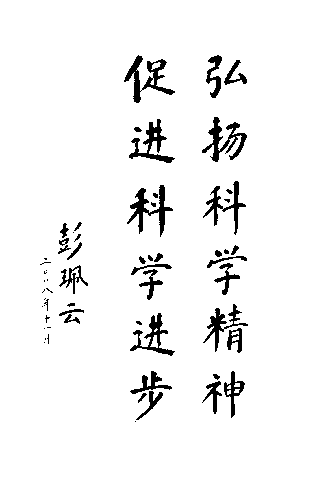 弘扬科学精神
促进科学进步
彭珮云
二〇〇八年十一月